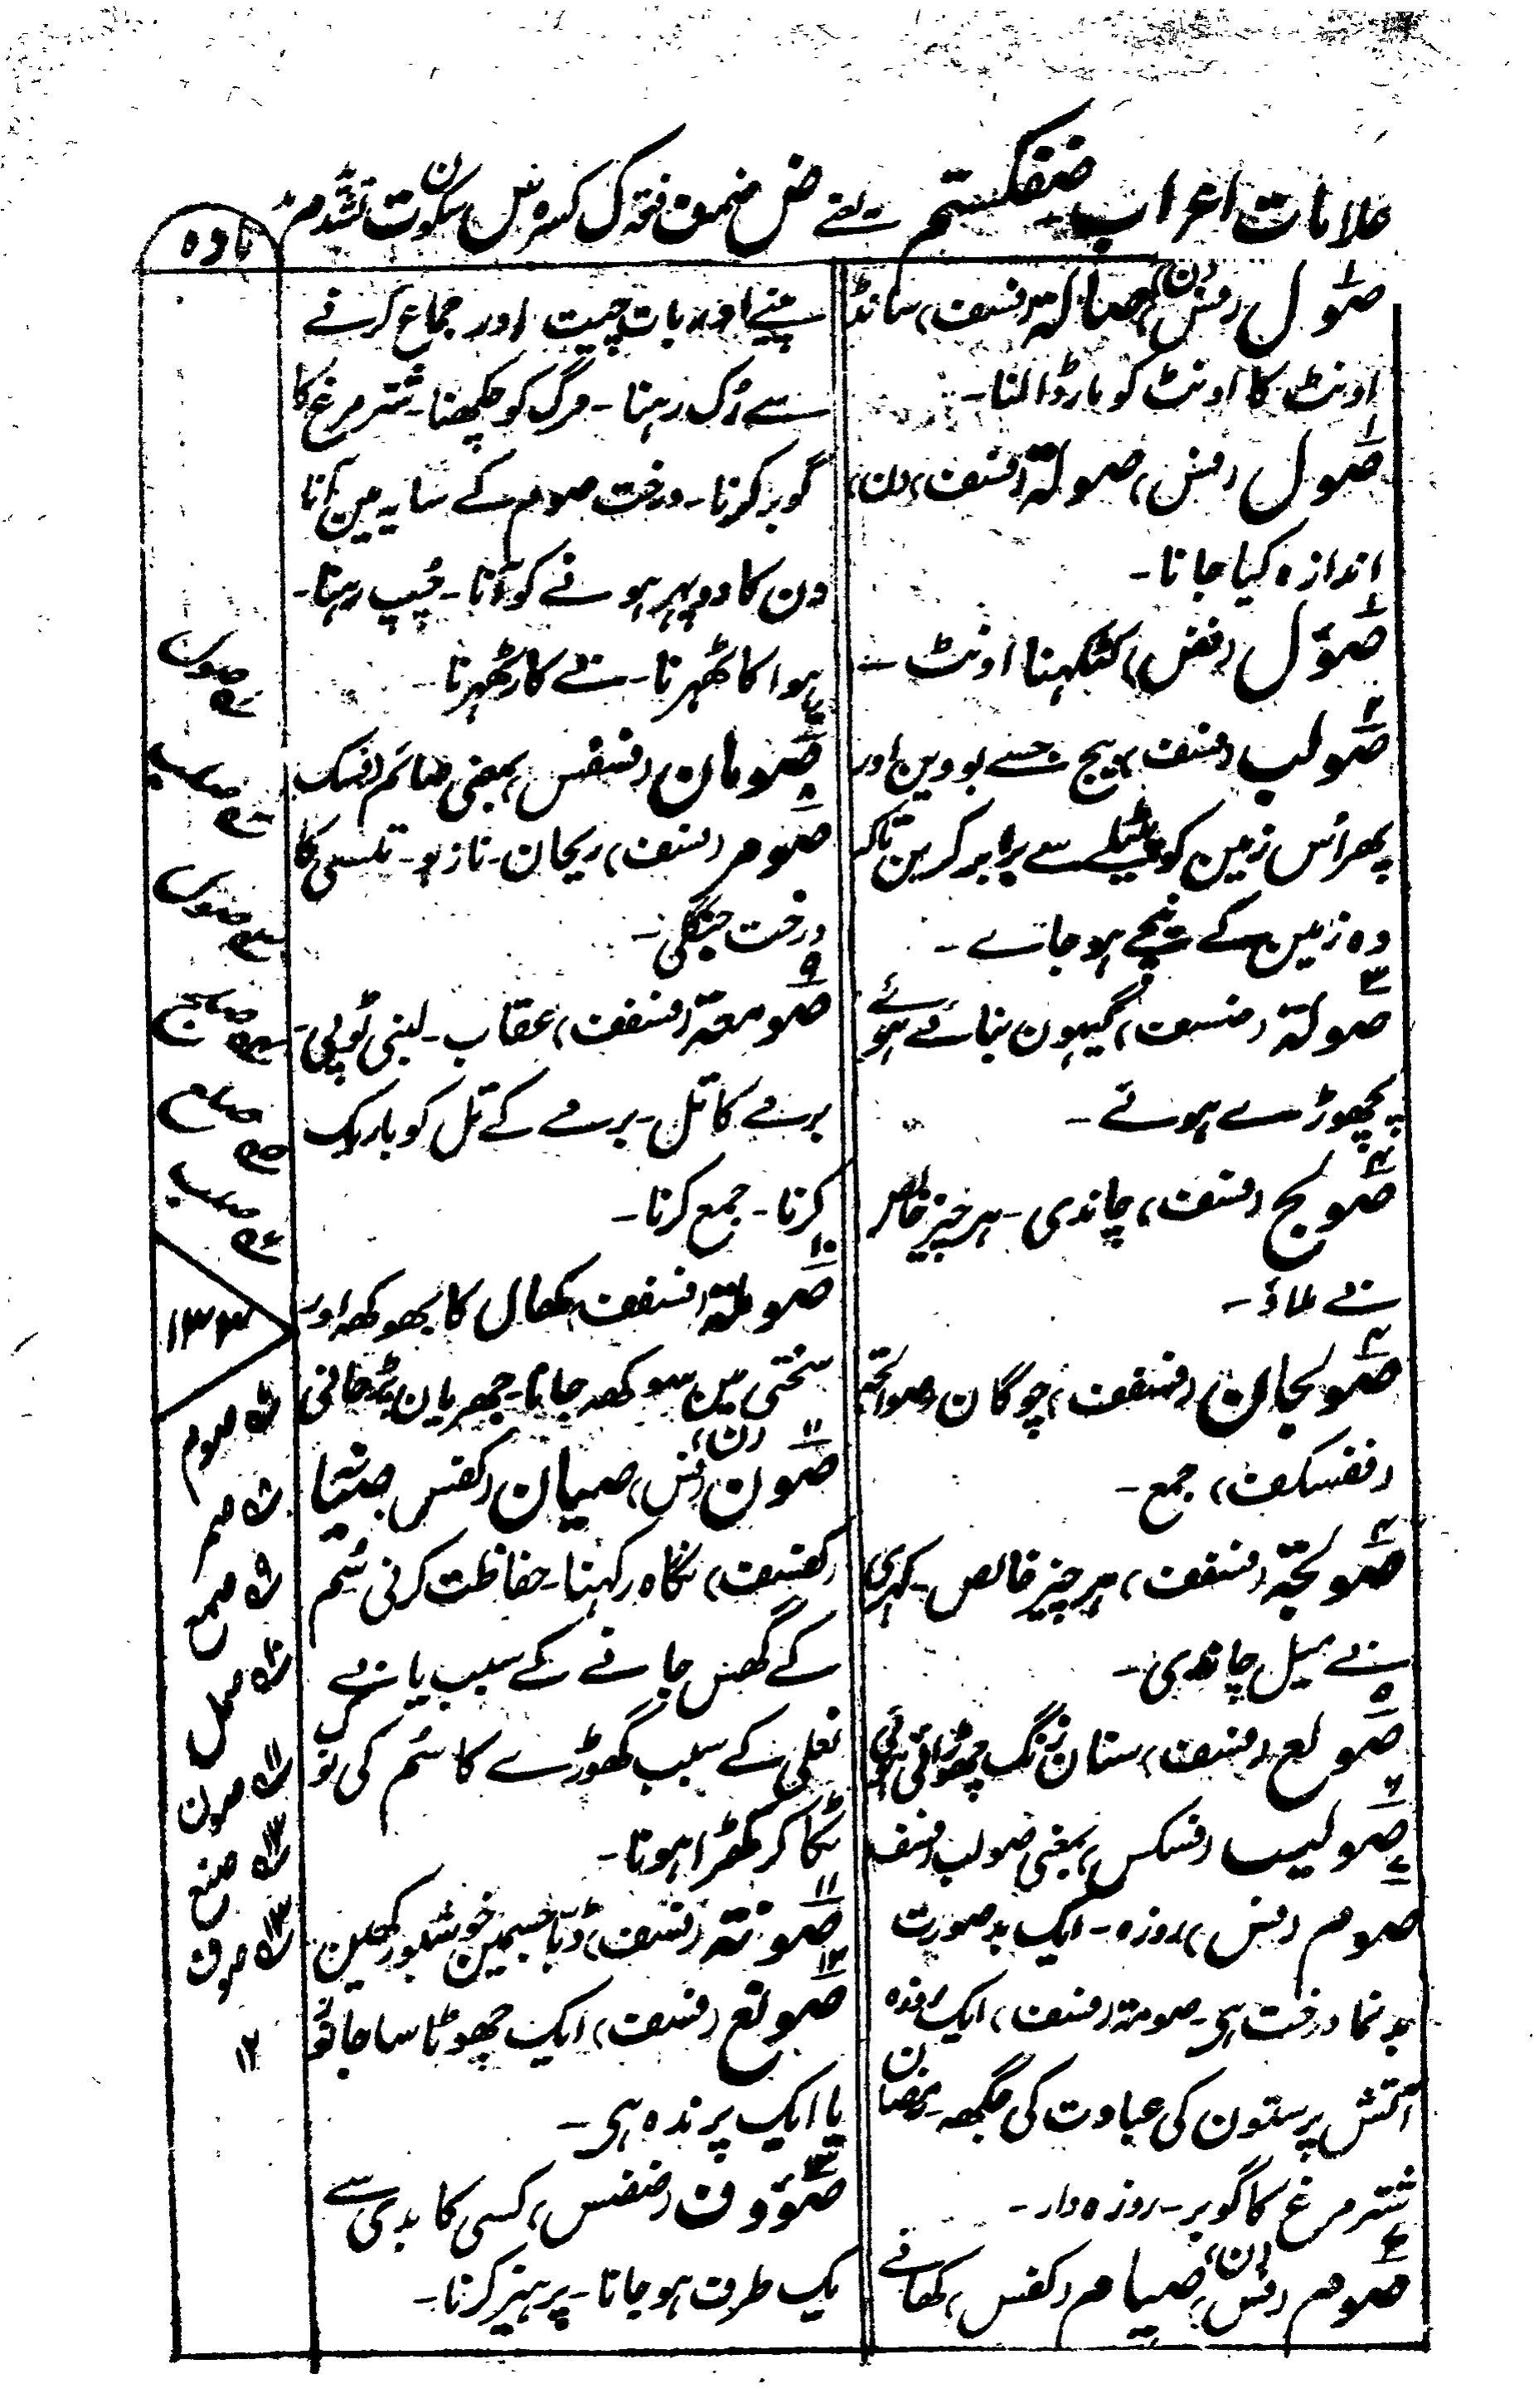 علامات اعراب ضفکستم یعنے ض ضمہ ف فتحہ ک کسرہ س سکون ت تشدید م مد
مادہ
صَول (فس) (ن) صالة (فسف) سانڈ
اونٹ کا اونٹ کو مار ڈالنا۔
صول (فس) صولة (فسف) (ن)
اندازہ کیا جانا۔
صؤل (فض) کٹکہنا اونٹ ۔
صولب (فسف) بیج جسے بووین اور
پھر اُس زمین کو پٹیلے سے برابر کرین تاکہ
وہ زمین کے نیچے ہو جاے ۔
صولة (ضسف) گیہون بنائے ہوئے
پچھوڑے ہوئے ۔
صولج (فسف) چاندی ۔ ہر چیز خالص
بے ملاؤ ۔
صولجان (فسفف) چوگان صوالجة
(ففسکف) جمع ۔
صولجة (فسفف) ہر چیز خالص ۔ کہری
بے میل چاندی ۔
صولع (فسف) سنان زنگ چھوڑائی ہوئی
صولیب (فسکس) بمعنی صولب (فسف)
صوم (فس) روزہ ۔ ایک بدصورت
بدنما درخت ہی ۔ صومة (فسف) ایک روزہ
آتش پرستون کی عبادت کی جگھہ ۔ رمضان
شتر مرغ کا گوبر ۔ روزہ دار ۔
صوم (فس) (ن) صیام (کفس) کھانے
پینے اور بات چیت اور جماع کرنے
سے رُک رہنا ۔ مرگ کو چکھنا ۔ شتر مرغ کا
گوبر کرنا ۔ درخت صوم کے سایہ مین آنا
دن کا دوپہر ہونے کو آنا ۔ چُپ رہنا ۔
ہوا کا ٹھہرنا ۔ نے کا ٹھہرنا ۔
صومان (فسفس) بمعنی صائم (فسک)
صومر (فسف) ریحان ۔ نازبو ۔ تلسی کا
درخت جنگلی ۔
صومعة (فسفف) عقاب ۔ لنبی ٹوپی ۔
برمے کا تل ۔ برمے کے تل کو باریک
کرنا ۔ جمع کرنا ۔
صوملة (فسفف) کھال کا بھوکھہ اور
سختی مین سوکھہ جانا ۔ جھریان پڑجانی
صون (فس) (ن) صیان (کفس) صیانة
(کفسف) نگاہ رکھنا ۔ حفاظت کرنی سُم
کے گھس جانے کے سبب یا بے
نعلی کے سبب گھوڑے کا سُم کی نوک
ٹکا کر کھڑا ہونا ۔
صونة (فسف) ڈبا جسمین خوشبو رکھین
صونع (فسف) ایک چھوٹا سا جانور
یا ایک پرندہ ہی ۔
صؤوف (ضفس) کسی کا بدی سے
یک طرف ہو جانا ۔ پرہیز کرنا ۔
صول
صلب
صول
صلج
صلع
صلب
۱۳۳
صوم
صمر
صمع
صمل
صون
صنع
صوف
۱۲